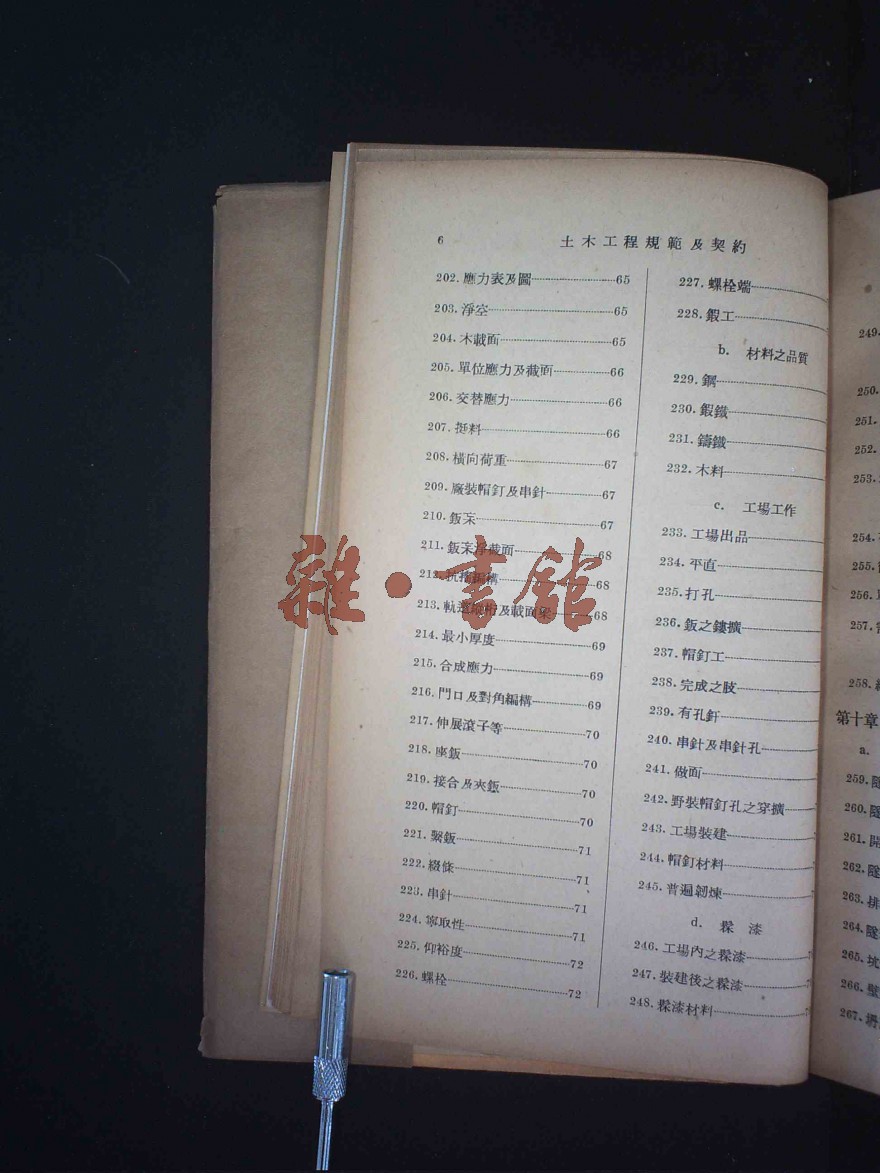 6
土木工程規範及契約
202. 應力表及圖 65
203. 淨空 65
204. 木截面 65
205. 單位應力及截面 66
206. 交替應力 66
207. 挺料 66
208. 橫向荷重 67
209. 廠裝帽釘及串針 67
210. 鈑梁 67
211. 鈑梁淨截面 68
212. 68
213. 軌 及截面梁 68
214. 最小厚度 69
215. 合成應力 69
216. 門口及對角編構 69
217. 伸展滾子等 70
218. 座鈑 70
219. 接合及夾鈑 70
220. 帽釘 70
221. 繫鈑 71
222. 綴條 71
223. 串針 71
224. 寧取性 71
225. 仰裕度 72
226. 螺栓 72
227. 螺栓端
228. 鍜工
b. 材料之品質
229. 鋼
230. 鍜鐵
231. 鑄鐵
232. 木料
c. 工場工作
233. 工場出品
234. 平直
235. 打孔
236. 鈑之鏤擴
237. 帽釘工
238. 完成之肢
239. 有孔釬
240. 串針及串針孔
241. 做面
242. 野裝帽釘孔之穿擴
243. 工場裝建
244. 帽釘材料
245. 普遍韌煉
d. 髹漆
246. 工場內之髹漆
247. 裝建後之髹漆
248. 髹漆材料
249.
250.
251.
252.
253.
254.
255.
256.
257.
258.
第十章
a.
259. 隧
260. 隧
261. 開
262. 隧
263. 排
264. 隧
265. 坑
266. 壁
267.
雜·書館